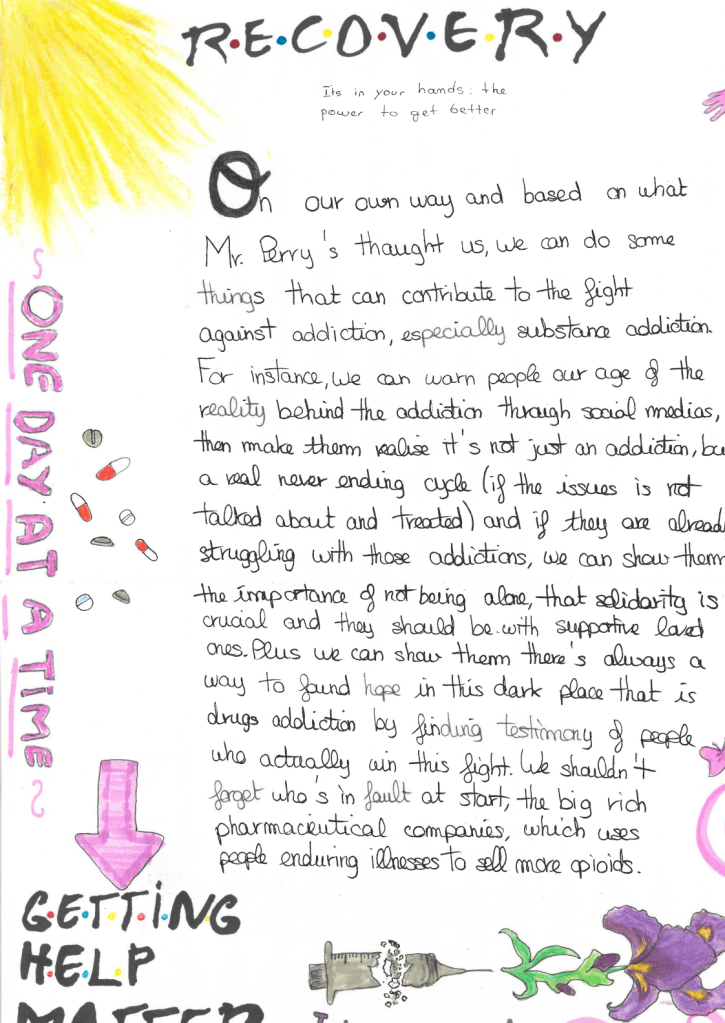 R.E.C.O.V.E.R.Y
Its in your hands: the
power to get better
On our own way and based on what
Mr. Perry's thaught us, we can do some
things that can contribute to the fight
against addiction, especially substance addiction.
For instance, we can warn people our age of the
reality behind the addiction through social medias,
then make them realise it's not just an addiction, bu
a real never ending cycle (if the issues is not
talked about and treated) and if they are alread
struggling with those addictions, we can show them
the importance of not being alone, that solidarity is
crucial and they should be with supportive loved
ones. Plus we can show them there's always a
way to found hope in this dark place that is
drugs addiction by finding testimony of people
who actually win this fight. We shouldn't
forget who's in fault at start, the big rich
pharmaceutical companies, which uses
people enduring illnesses to sell more opioids.
~ ONE DAY AT A TIME ~
G.E.T.T.I.NG
H.E.L.P
MATTER